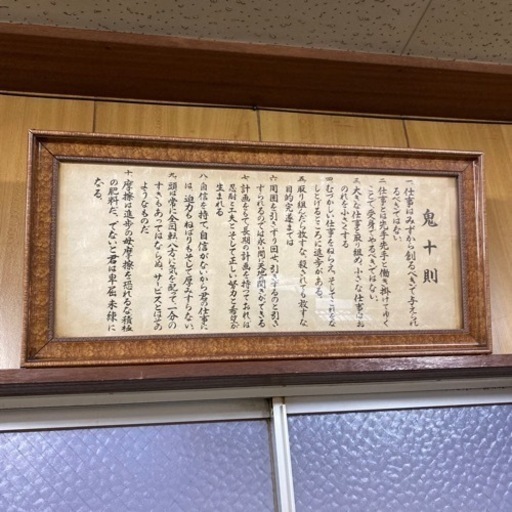 鬼十則
一、仕事はみずから創るべきで与えられ
るべきではない
二、仕事とは先手先手と働き掛けてゆく
ことで受身でやるべきではない。
三、大きな仕事と取り組め、小さな仕事はお
のれを小さくする
四、むづかしい仕事をねらえ、そしてこれをな
しとげるところに進歩がある。
五、取り組んだら放すな、殺されても放すな
目的完遂までは
六、周囲を引きずり回せ、引きずるのと引き
ずられるのでは永い間に天地の開きができる
七、計画をもて、長期の計画を持っておれば
忍耐と工夫とそして正しい努力と希望が
生まれる
八、自信を持て、自信がないから君の仕事に
は、迫力もねばりもそして厚みすらない。
九、頭は常に全回転、八方に気を配って、一分の
すきもあってはならぬ、サービスとはその
ようなものだ
十、摩擦は進歩の母、摩擦を恐れるな積極
の肥料だ、でないと君は卑屈未練に
なる。